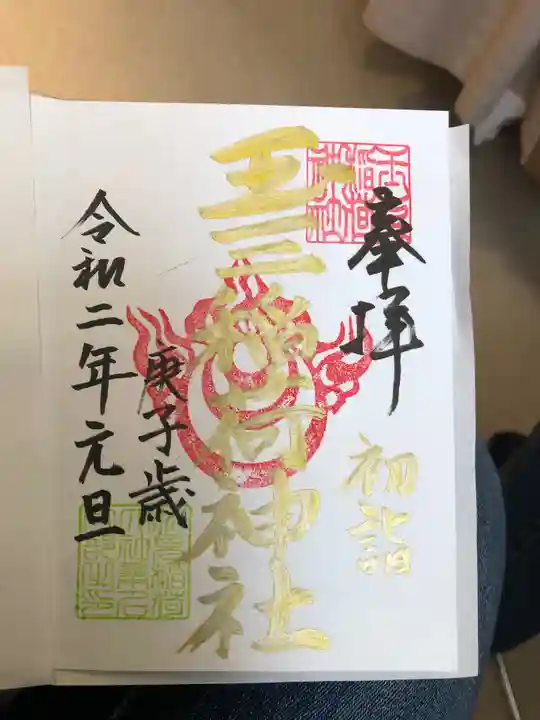 奉拝
初詣
稲荷神社
庚子歳
令和二年元旦